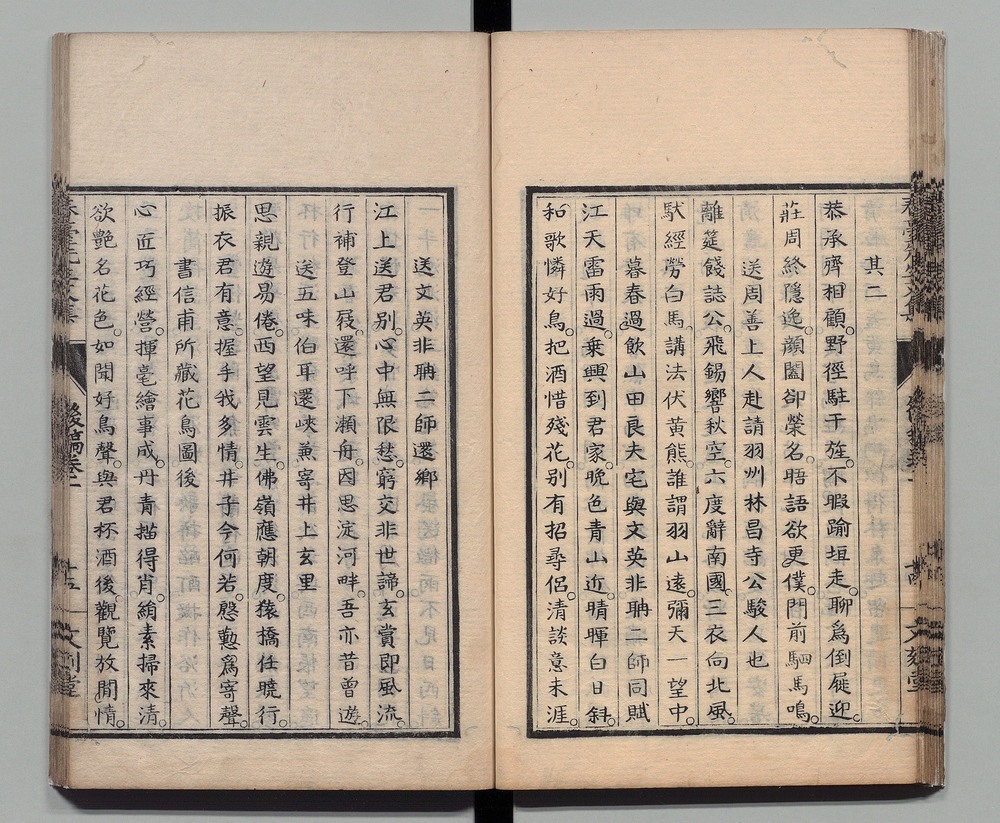 其二
恭承齊相顧野徑駐干旌不暇踰垣走聊爲倒屣迎
莊周終隱逸顔闔卻榮名晤語欲更僕門前駟馬鳴
送周善上人赴請羽州林昌寺公駿人也
離筵餞誌公飛錫響秋空六度辭南國三衣向北風
馱經勞白馬講法伏黄熊誰謂羽山遠彌天一望中
暮春過飲山田良夫宅與文英非聃二師同賦
江天雷雨過乗興到君家晩色青山近晴暉白日斜
和歌憐好鳥把酒惜殘花別有招尋侶清談意未涯
送文英非聃二師還鄉
江上送君別心中無限愁窮交非世諦玄賞即風流
行補登山屐還呼下瀬舟因思淀河畔吾亦昔曾遊
送五味伯耳還峽兼寄井上玄里
思親遊易倦西望見雲生佛嶺應朝度猿橋任曉行
振衣君有意握手我多情井子今何若慇懃爲寄聲
書信甫所藏花鳥圖後
心匠巧經營揮毫繪事成丹青描得肖綃素掃來清
欲艶名花色如聞好鳥聲與君杯酒後觀覽放閒情
後稿卷二